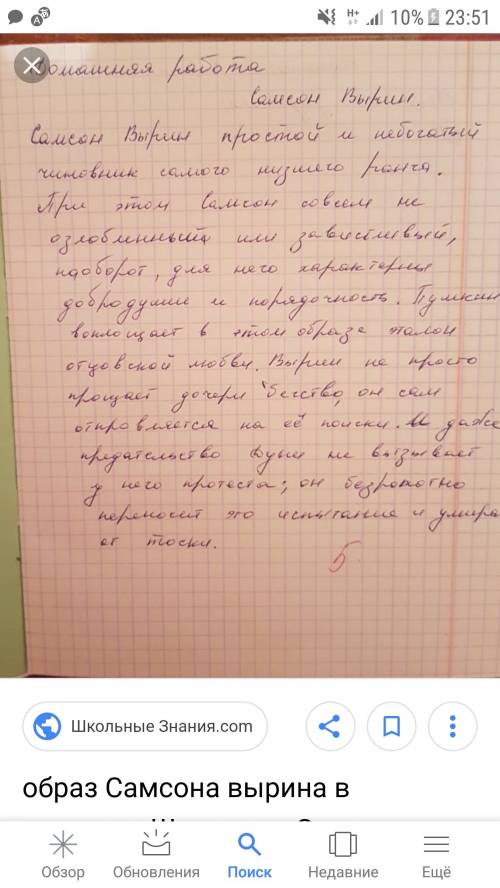 10% 23:51
Домашняя работа
Самсон Вырин.
Самсон Вырин простой и небогатый
чиновник самого низшего ранга.
При этом Самсон совсем не
озлобленный или завистливый,
наоборот, для него характерны
добродушие и порядочность. Пушкин
воплощает в этом образе эталон
отцовской любви. Вырин не просто
прощает дочери бегство, он сам
отправляется на её поиски. И даже
предательство Дуни не вызывает
у него протеста; он безропотно
переносит это испытание и умира
от тоски.
5
Школьные Знания.com
образ Самсона вырина в
Обзор
Обновления
Поиск
Недавние
Ещё